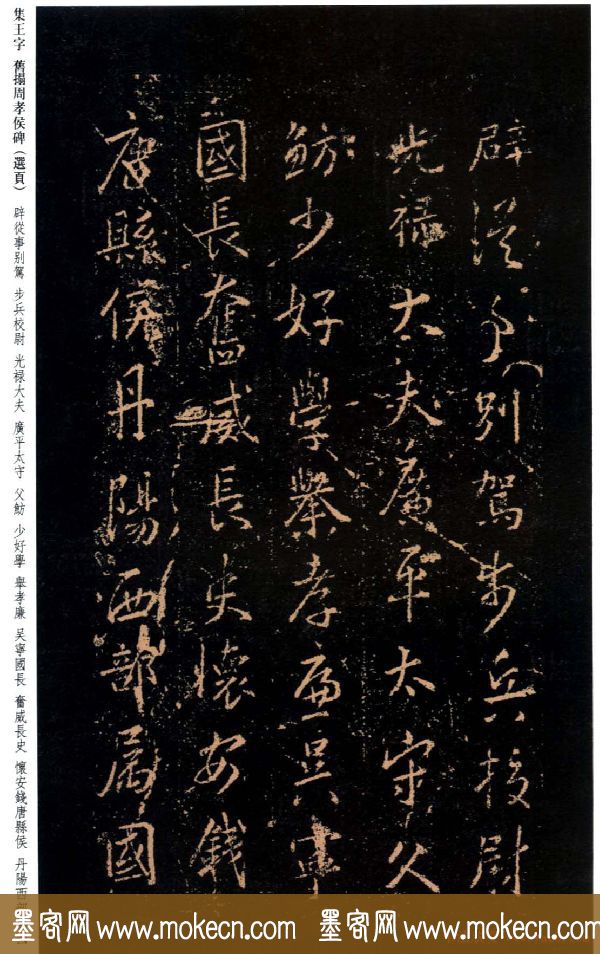 辟從事別駕步兵校尉
光禄大夫廣平太守父
魴少好學舉孝廉吳寧
國長奮威長史懷安錢
唐縣侯丹陽西部屬國
集王字 舊搨周孝侯碑（選頁） 辟從事别駕 步兵校尉 光禄大夫 廣平太守 父魴 少好學 舉孝廉 吴寧國長 奮威長史 懷安錢唐縣侯 丹陽西
墨客网 www.mokecn.com 墨客网 www.mokecn.com